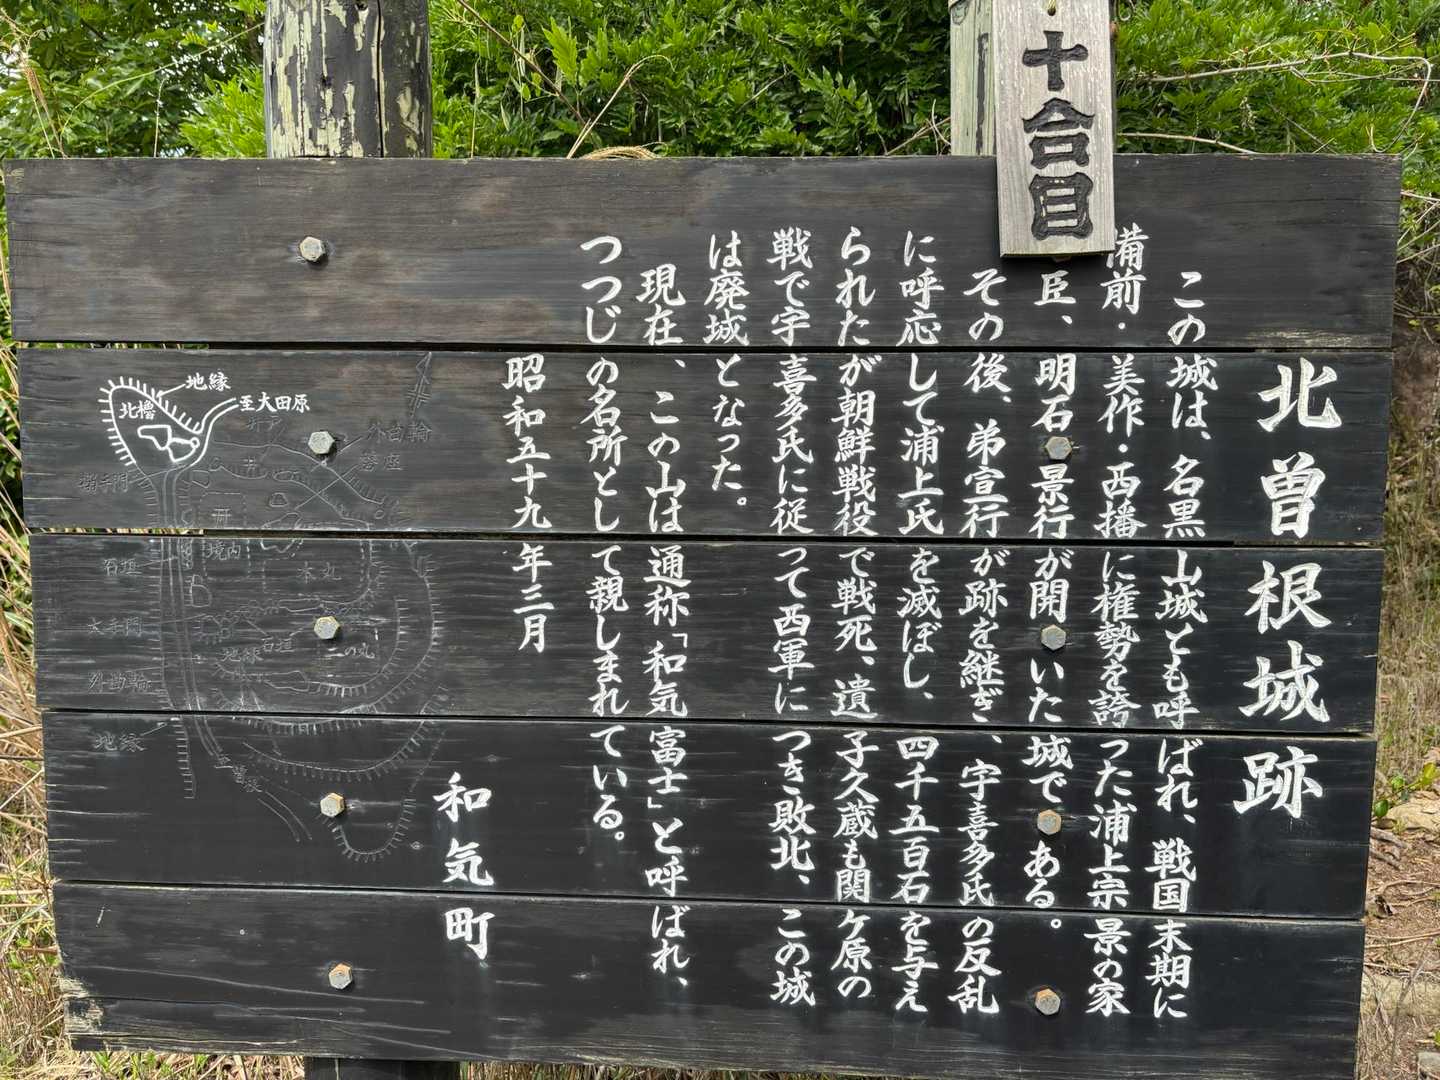 十合目
北曽根城跡
この城は、名黒山城とも呼ばれ、戦国末期に
備前・美作・西播に権勢を誇った浦上宗景の家
臣、明石景行が開いた城である。
その後、弟宣行が跡を継ぎ、宇喜多氏の反乱
に呼応して浦上氏を滅ぼし、四千五百石を与え
られたが朝鮮戦役で戦死、遺子久蔵も関ケ原の
戦で宇喜多氏に従って西軍につき敗北、この城
は廃城となった。
現在、この山は通称「和気富士」と呼ばれ、
つつじの名所として親しまれている。
昭和五十九年三月
和気町
至大田原
地縁
北櫓
井戸
外曲輪
搦手門
境内
本丸
石垣
大手門
地縁
石垣
二の丸
外曲輪
地縁